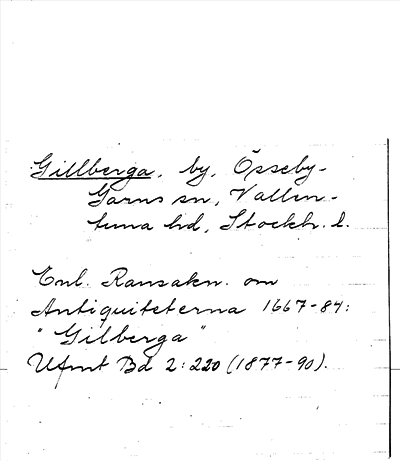 Gillberga, by, Össeby-
Garns sn, Vallen-
tuna hd, Stockh. l.
Enl. Ransakn. om
Antiquiteterna 1667-84:
"Gilberga"
Ufmt Bd 2:220 (1877-90).